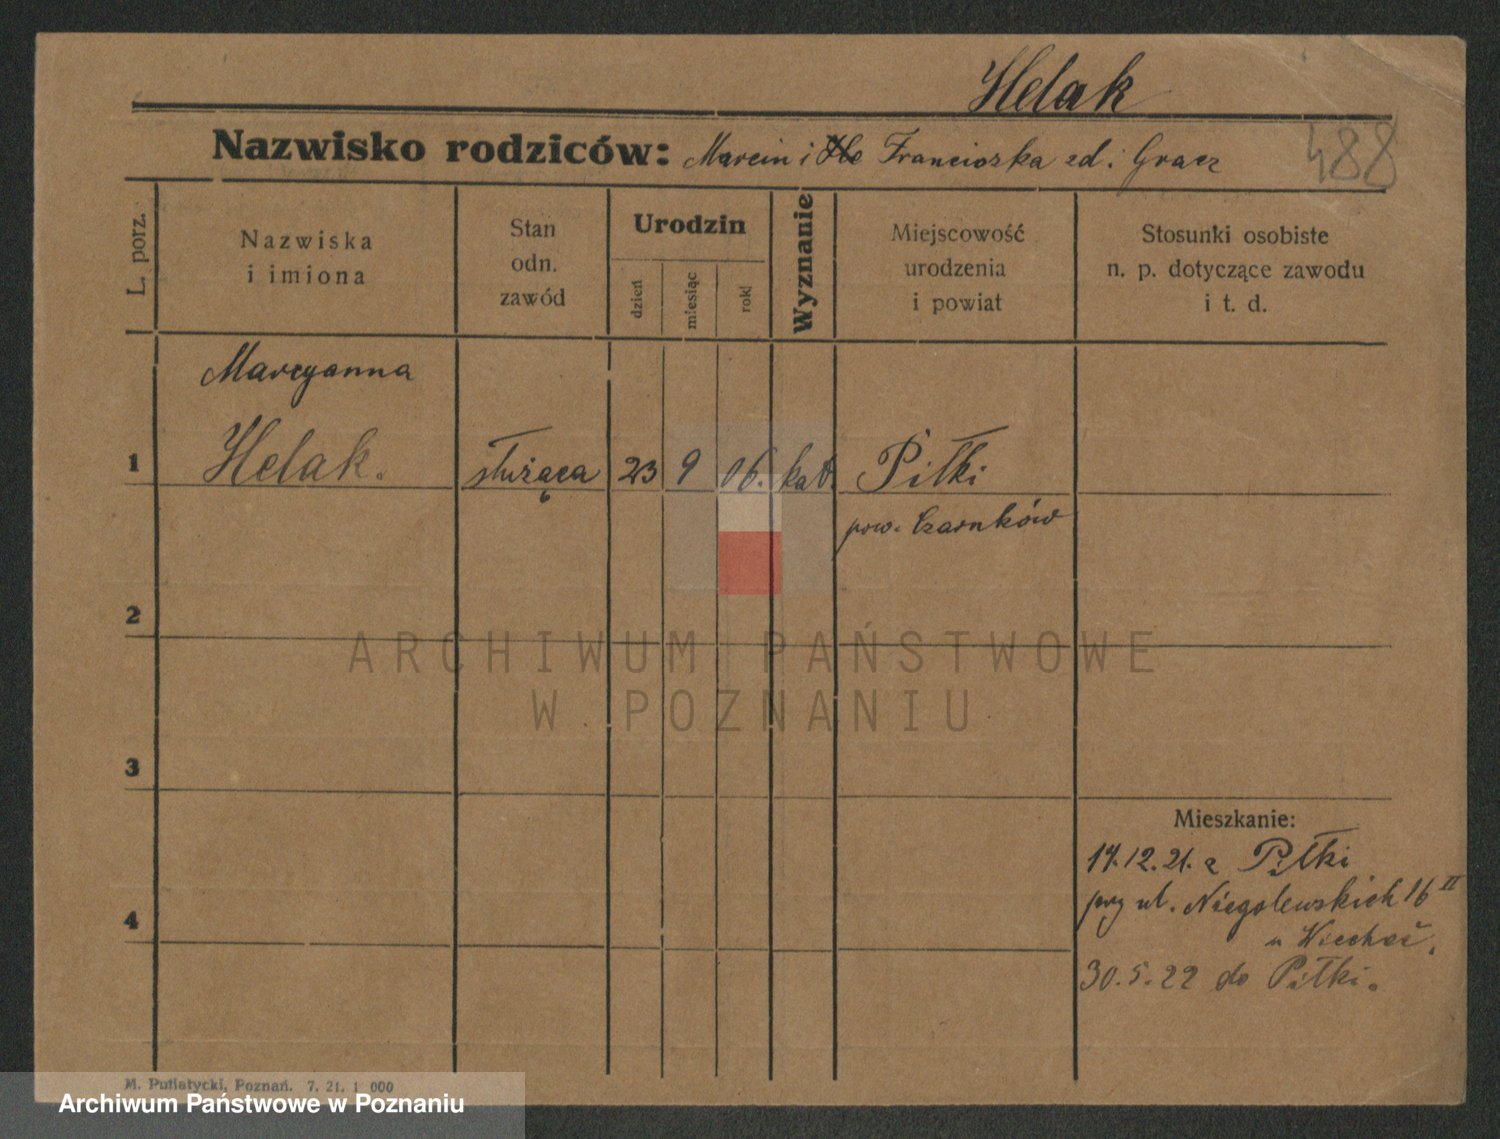 Helak
Nazwisko rodziców: Marcin i Franciszka zd. Gracz
488
L. porz.
Nazwiska
i imiona
Stan
odn.
zawód
Urodzin
dzień
miesiąc
rok
Wyznanie
Miejscowość
urodzenia
i powiat
Stosunki osobiste
n. p. dotyczące zawodu
i t. d.
Marcyanna
1 Helak. służąca 23 9 06. kat. Piłki
pow. Czarnków
2
ARCHIWUM PAŃSTWOWE
W POZNANIU
3
Mieszkanie:
17.12.21. z Piłki
przy ul. Niegolewskich 16 II
4
u
30.5.22 do Piłki.
M. Putiatycki, Poznań. 7. 21. 1 000
Archiwum Państwowe w Poznaniu